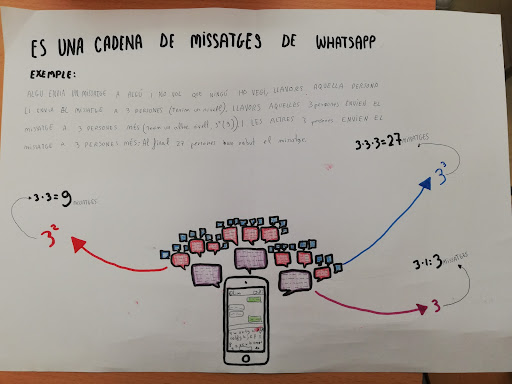 ES UNA CADENA DE MISSATGES DE WHATSAPP
EXEMPLE:
ALGÚ ENVIA UN MISSATGE A ALGÚ I NO VOL QUE NINGÚ HO VEGI, LLAVORS, AQUELLA PERSONA
LI ENVIA EL MISSATGE A 3 PERSONES (tenim un nivell), LLAVORS AQUELLES 3 persones ENVIEN EL
MISSATGE A 3 PERSONES MÉS I LES ALTRES 3 persones ENVIEN EL
MISSATGE A 3 PERSONES MÉS: Al final 27 persones han rebut el missatge.
3·3·3=27 MISSATGES
3³
3·3=9 MISSATGES
3²
3·1=3 MISSATGES
3